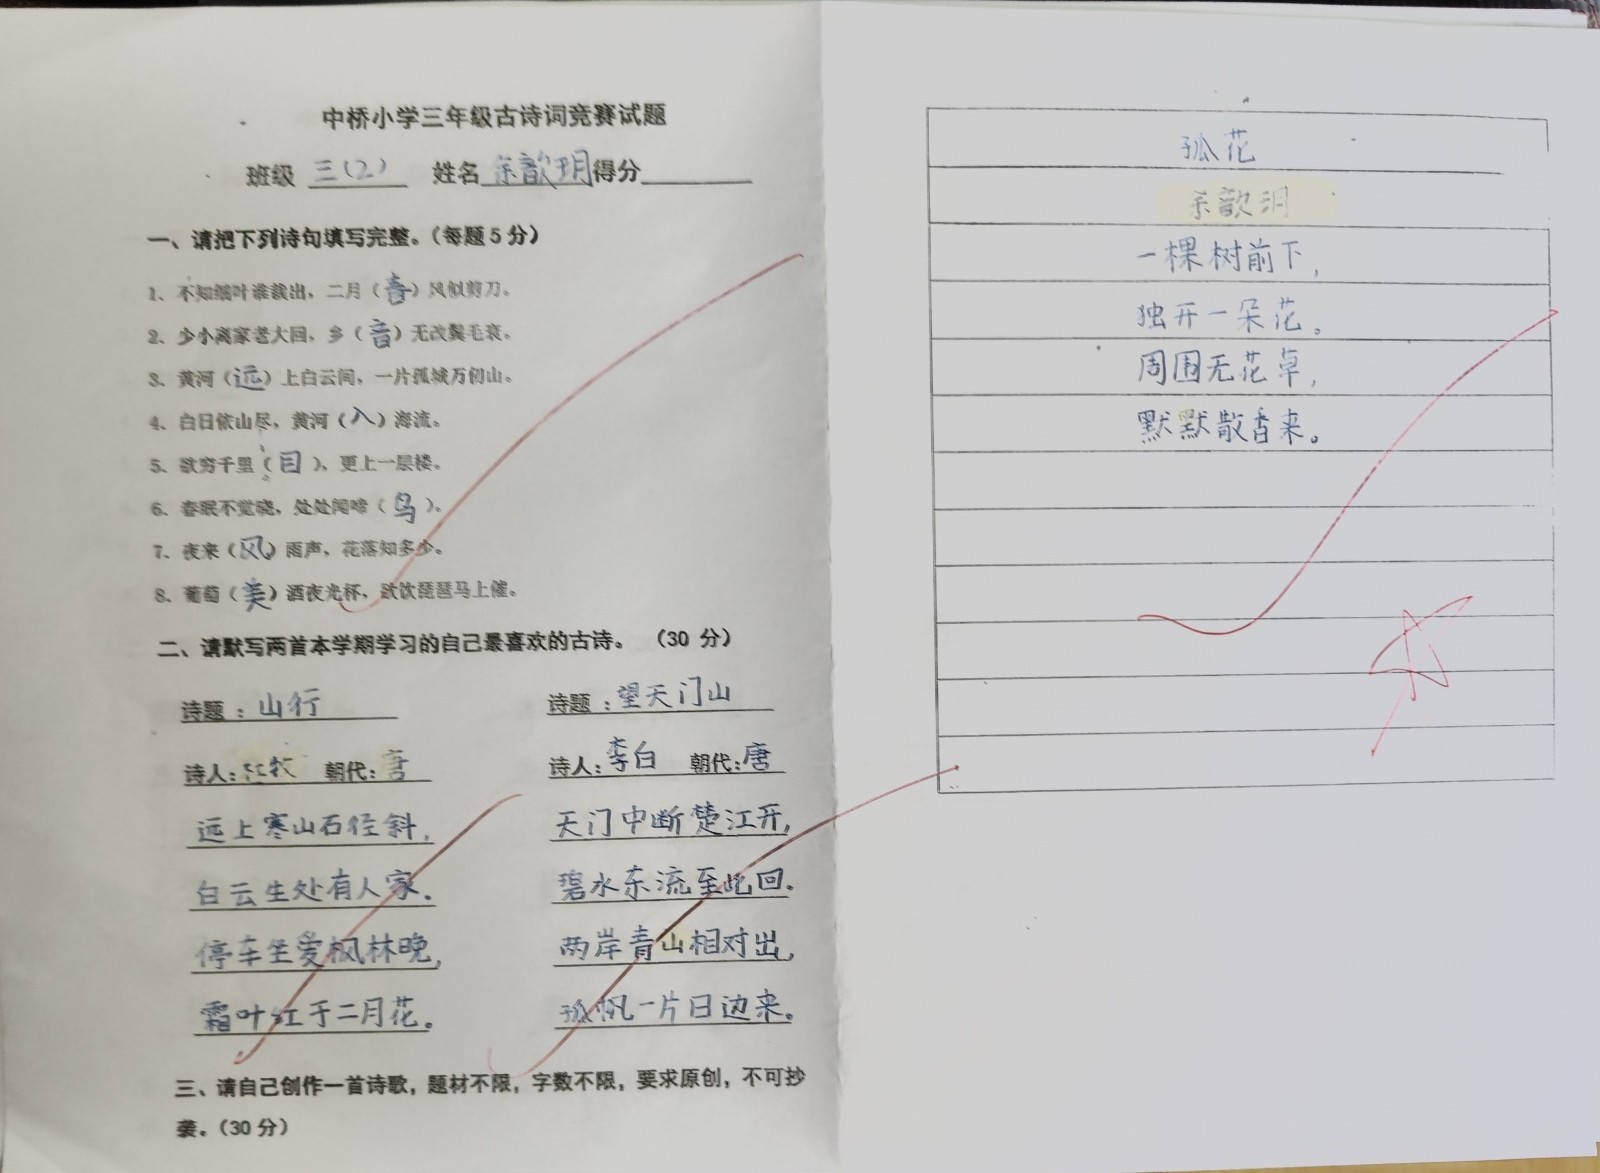 中桥小学三年级古诗词竞赛试题
班级 三(2) 姓名 余歆玥 得分
一、请把下列诗句填写完整。(每题5分)
1、不知细叶谁裁出，二月(春)风似剪刀。
2、少小离家老大回，乡(音)无改鬓毛衰。
3、黄河(远)上白云间，一片孤城万仞山。
4、白日依山尽，黄河(入)海流。
5、欲穷千里(目)，更上一层楼。
6、春眠不觉晓，处处闻啼(鸟)。
7、夜来(风)雨声，花落知多少。
8、葡萄(美)酒夜光杯，欲饮琵琶马上催。
二、请默写两首本学期学习的自己最喜欢的古诗。(30分)
诗题：山行
诗人：杜牧 朝代：唐
远上寒山石径斜，
白云生处有人家.
停车坐爱枫林晚，
霜叶红于二月花。
诗题：望天门山
诗人：李白 朝代：唐
天门中断楚江开，
碧水东流至此回.
两岸青山相对出，
孤帆一片日边来。
三、请自己创作一首诗歌，题材不限，字数不限，要求原创，不可抄
袭。(30分)
孤花
余歆玥
一棵树前下，
独开一朵花。
周围无花草，
默默散香来。